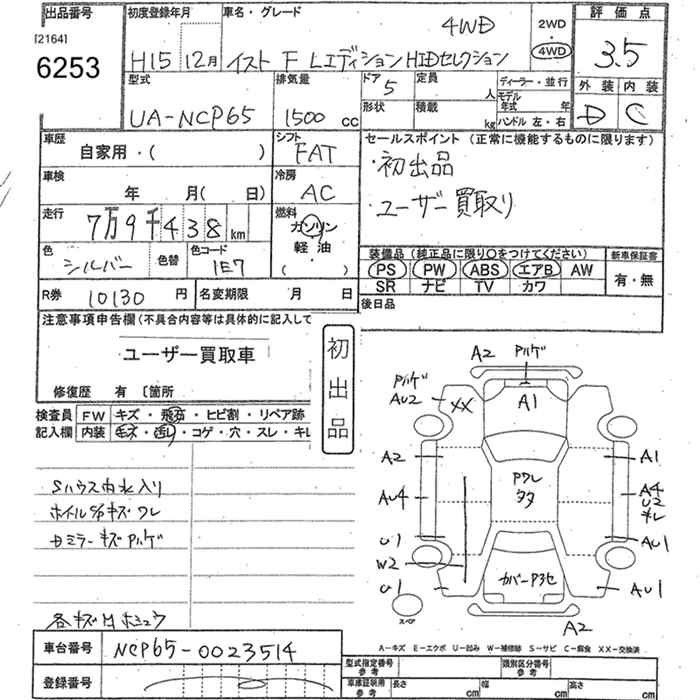 出品番号 初度登録年月 車名・グレード 4WD 2WD・4WD 評価点
[2164]
6253 H15 12月 イスト F Lエディション HIDセレクション 3.5
型式 排気量 ドア 5 定員 人 ディーラー・並行 外装 内装
UA-NCP65 1500 cc 形状 積載 kg モデル年式 年 D C
ハンドル 左・右
車歴 シフト セールスポイント(正常に機能するものに限ります)
自家用・( ) FAT ・初出品
車検 冷房
年 月( 日) AC ・ユーザー買取り
走行 燃料
7万9千438km ガソリン
軽油
色 シルバー 色替 色コード 1E7 ( )
装備品(純正品に限り○をつけてください) 新車保証書
PS PW ABS エアB AW 有・無
SR ナビ TV カワ
R券 10130円 名変期限 月 日 後日品
注意事項申告欄(不具合内容等は具体的に記入して
ユーザー買取車
初出品
修復歴 有 〔箇所
検査員 FW キズ・飛石・ヒビ割・リペア跡
記入欄 内装 モズ・汚レ・コゲ・穴・スレ・キレ
A2 Pハゲ
Pハゲ
AU2 XX A1
A2 A1
Pワレ
タタ
AU4 A4
U2
キレ
U1 AU1
W2
U1 カバーP3セ AU1
スペア
A2
Sハウス内水入り
ホイルS/Pキズワレ
ドミラーキズPハゲ
各キズM
A-キズ E-エクボ U-凹み W-補修跡 S-サビ C-腐食 XX-交換済
車台番号 NCP65-0023514
登録番号
型式指定番号 参考 類別区分番号 参考
車庫証明用 参考 長さ cm 幅 cm 高さ cm